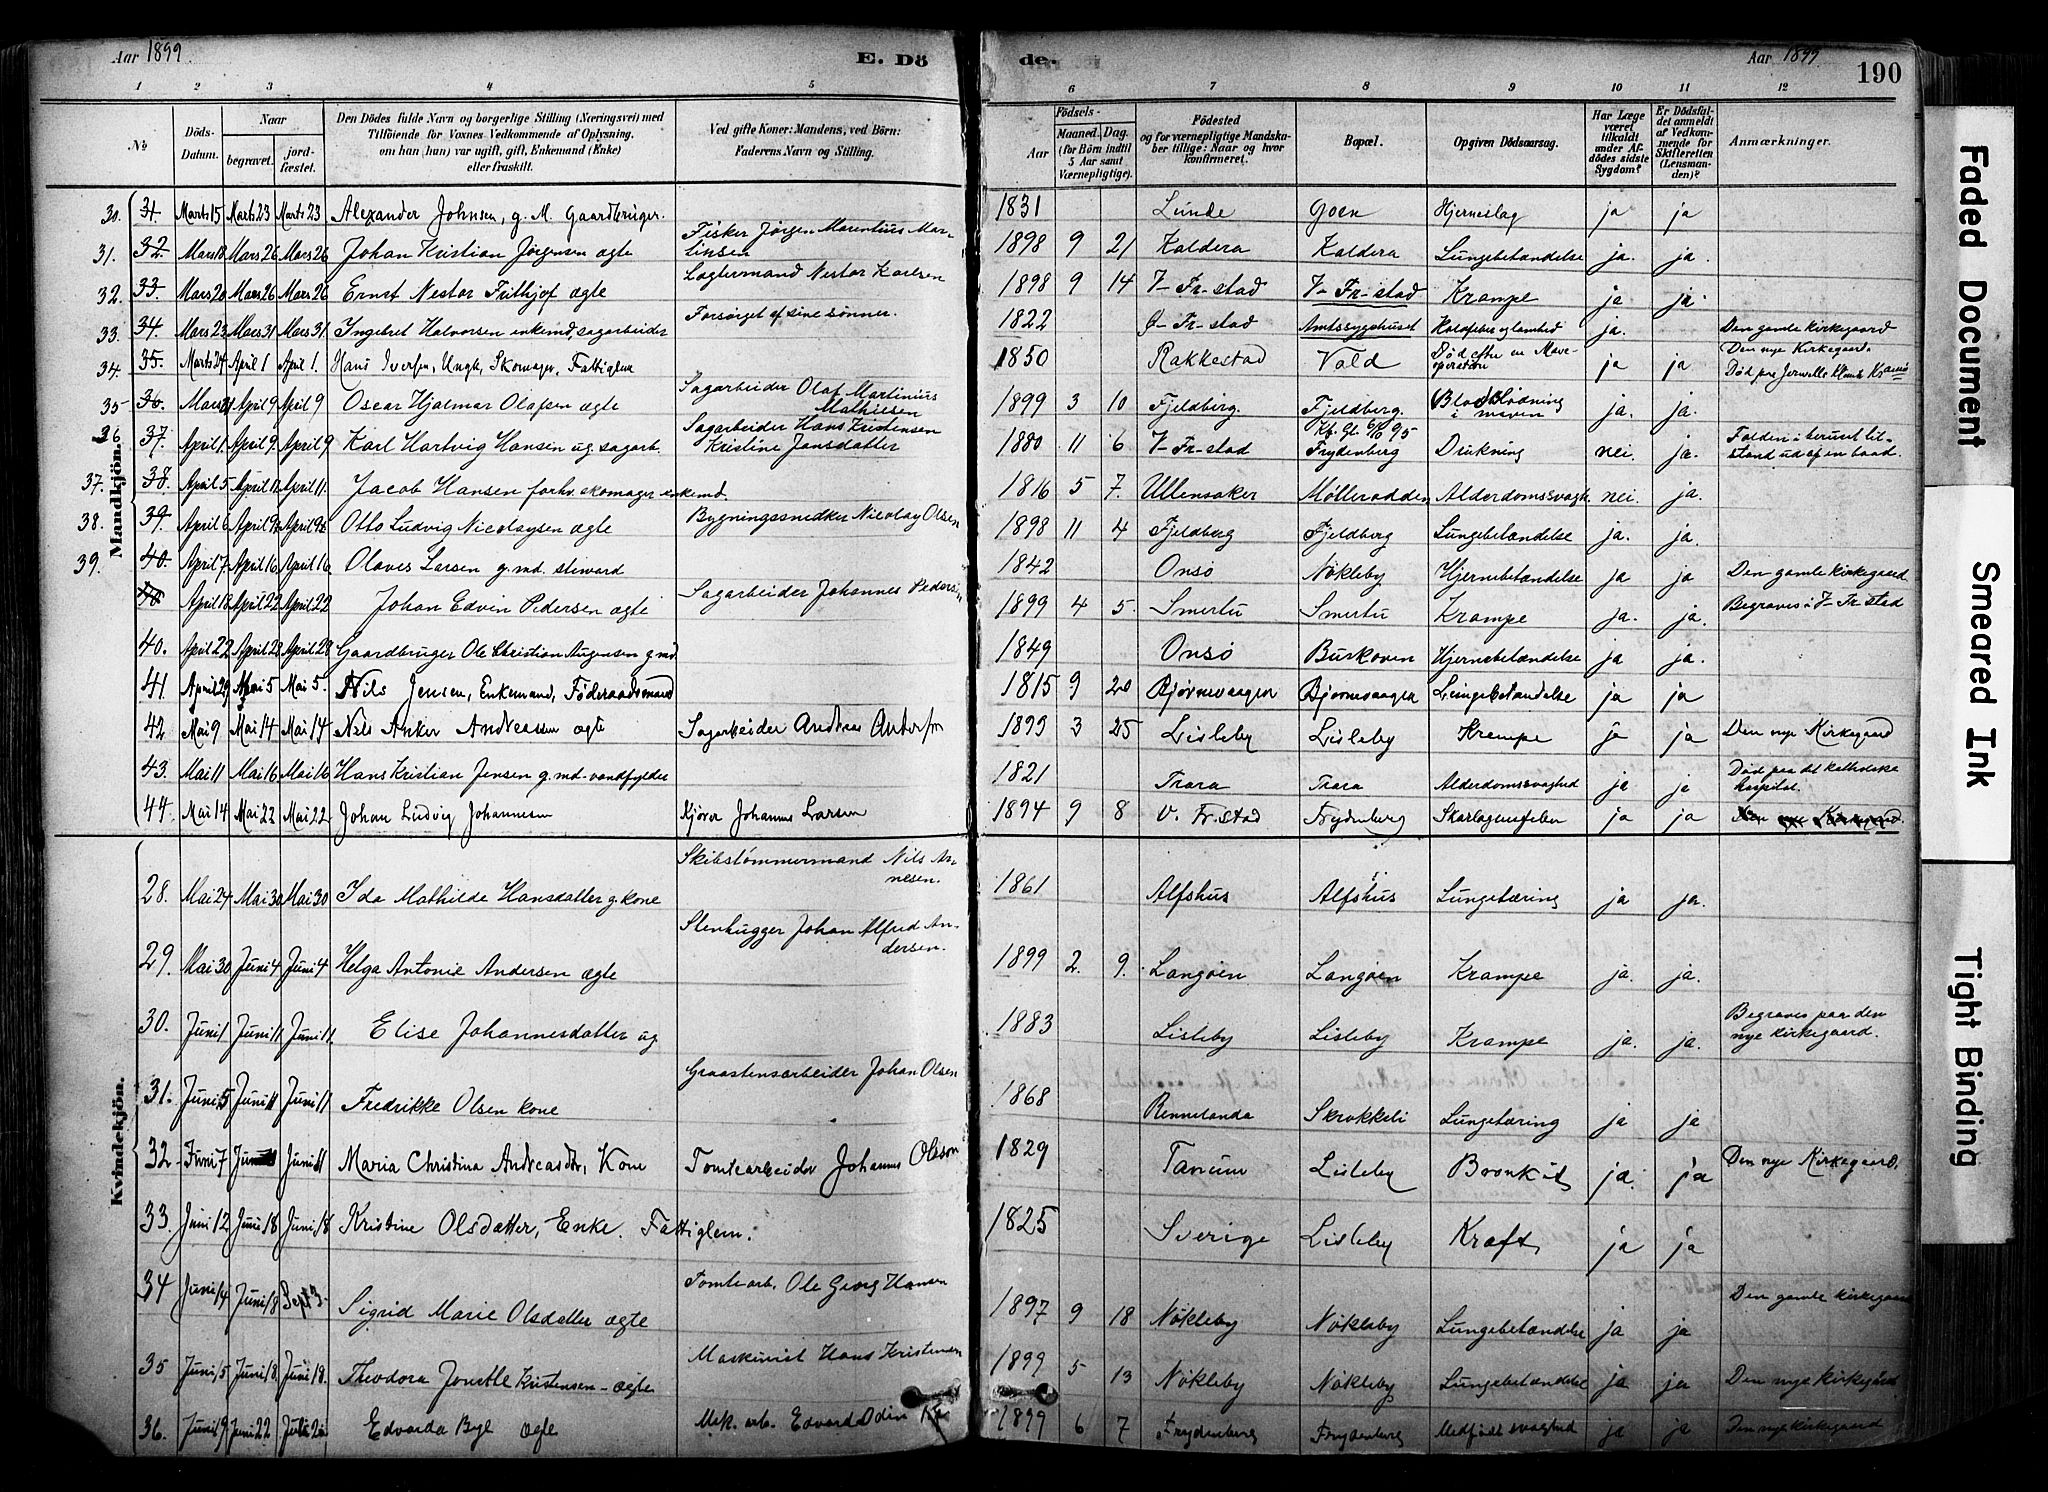 Aar 1899. E. Dö de. Aar 1899 190
1 2 3 4 5 6 7 8 9 10 11 12
№ Döds-Datum. Naar begravet. jordfæstet. Den Dödes fulde Navn og borgerlige Stilling (Næringsvei) med Tilföiende for Voxnes Vedkommende af Oplysning, om han (hun) var ugift, gift, Enkemand (Enke) eller fraskilt. Ved gifte Koner: Mandens, ved Börn: Faderens Navn og Stilling. Födsels- Aar Maaned. Dag. (for Börn indtil 5 Aar samt Værnepligtige). Födested og for værnepligtige Mandskaber tillige: Naar og hvor konfirmeret. Bopæl. Opgiven Dödsaarsag. Har Læge været tilkaldt under Afdödes sidste Sygdom? Er Dödsfaldet anmeldt af Vedkommende for Skifteretten (Lensmanden)? Anmærkninger.
Mandkjön.
30. 31. Marts 15 Marts 23 Marts 23 Alexander Johnsen, g. M. Gaardbruger. 1831 Lunde Goen Hjerneslag ja ja
31. 32. Mars 18 Mars 26 Mars 26 Johan Kristian Jørgensen ægte Fisker Jörgen Marentius Martinsen 1898 9 21 Kaldera Kaldera Lungebetændelse ja. ja.
32. 33. Mars 20 Mars 26 Mars 26 Ernst Nestor Frithjof ægte Lagtermand Nestor Karlsen 1898 9 14 V-Fr-stad V-Fr-stad Krampe ja ja.
33. 34. Mars 23 Mars 31 Mars 31 Ingebret Halvorsen enkemd, sagarbeider Forsørget af sine sønner. 1822 G-Fr-stad Amtssygehuset ja. Den gamle kirkegaard
34. 35. Marts 24 April 1 April 1. Hans Iversen, Ungk, Skomager, Fattiglem 1850 Rakkestad Vold Død efter en Maveoperation ja ja Den nye Kirkegaard.
35 36. April 9 April 9 Oscar Hjalmar Olafsen ægte Sagarbeider Olaf Martinius Mathisen 1899 3 10 Fjeldberg. Fjeldberg. i maven ja. ja.
36 37. April 1 April 9 April 9 Karl Hartvig Hansen ug. sagarb. Sagarbeider Hans Kristensen Kristine Jansdatter 1880 11 6 V-Fr-stad Frydenberg Drukning nei. ja. Falden i beruset tilstand ud af en baad.
37. 38. April 5 April 11 April 11. Jacob Hansen forhv. skomager enkemd. 1816 5 7. Ullensaker Mølleradden Alderdomssvagh. nei. ja.
38. 39. April 6 April 9 April 9 Otto Ludvig Nicolaysen ægte Bygningssnedker Nicolay Olsen 1898 11 4 Fjeldberg Fjeldberg Lungebetændelse ja. ja.
39. 40. April 7 April 16 April 16 Olaves Larsen g.md. steward 1842 Onsø Nökleby Hjernebetændelse ja ja Den gamle kirkegaard
April 18 April 22 April 22 Johan Edvin Pedersen ægte Sagarbeider Johannes Pedersen 1899 4 5. Smertu Smertu Krampe ja. ja. Begraves i V-Fr-stad
40. April 22 April 28 April 28 Gaardbruger Ole Christian Augensen g.md 1849 Onsø Burkoven Hjernebetændelse ja ja.
41. April 29 Mai 5 Mai 5. Nils Jensen, Enkemand, Föderaadsmand 1815 9 20 Bjørnevaagen Bjørnevaagen Lungebetændelse ja ja
42 Mai 9 Mai 14 Mai 14 Nils Anker Andreassen ægte Sagarbeider Andreas 1899 3 25 Lisleby Lisleby Krampe ja ja Den nye Kirkegaard
43. Mai 11 Mai 16 Mai 16 Hans Kristian Jensen g.md. vandfylder 1821 Trara Trara Alderdomssvaghed ja ja Död paa det katholske hospital.
44. Mai 14 Mai 22 Mai 22 Johan Ludvig Johannesen Kjører Johannes Larsen 1894 9 8 V. Fr.stad Frydenberg Skarlagensfeber ja ja Den nye Kirkegaard.
Kvindekjön.
28. Mai 24 Mai 30 Mai 30 Ida Mathilde Hansdatter g. kone Skibstømmermand Nils Arnesen. 1861 Alfshus Alfshus Lungetæring ja ja.
29. Mai 30 Juni 4 Juni 4 Helga Antonie Andersen ægte Stenhugger Johan Alfred Andersen. 1899 2. 9. Langøen Langøen Krampe ja. ja.
30. Juni 1 Juni 11 Juni 11. Elise Johannesdatter ug 1883 Lisleby Lisleby Krampe ja. ja. Begraves paa den nye kirkegaard.
31. Juni 5 Juni 11 Juni 11 Fredrikke Olsen kone Graastensarbeider Johan Olsen 1868 Rennelanda Skrokkeli Lungetæring ja ja
32 Juni 7 Juni 11 Maria Christina Andreasdtr, Kone Tomtearbeider Johannes Olsson 1829 Tanum Lisleby Bronkit ja. ja Den nye Kirkegaard.
33. Juni 12 Juni 18 Juni 18 Kristine Olsdatter, Enke. Fattiglem. 1825 Sverige Lisleby Kræft ja ja
34 Juni 14 Juni 18 Sept 3. Sigrid Marie Olsdatter ægte Tomtearb. Ole Georg Hansen 1897 9 18 Nökleby Nökleby Lungebetændelse ja ja Den gamle kirkegaard
35 Juni 15 Juni 18. Juni 18. Theodora Kristensen - ægte Maskinist Hans Kristensen 1899 5 13 Nökleby Nökleby Lungebetændelse ja ja Den nye kirkegård
36. Juni 19 Juni 22 Edvarda Byl ægte Mek. arb. Edvard Odin 1899 6 7 Frydenberg Frydenberg Medfødt svaghed ja ja Den nye kirkegaard
Faded Document
Smeared Ink
Tight Binding